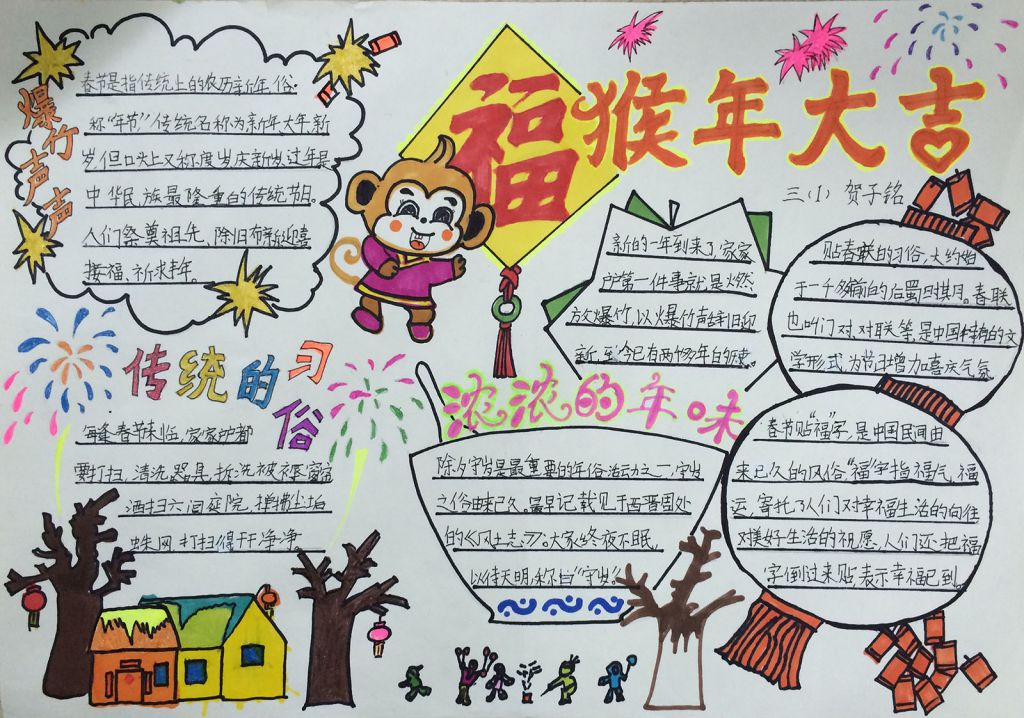 福
猴年大吉
三(1) 贺子铭
爆竹声声
春节是指传统上的农历新年,俗
称“年节”传统名称为新年大年新
岁但口头上又称度岁庆新岁过年是
中华民族最隆重的传统节日。
人们祭奠祖先、除旧布新迎禧
接福、祈求丰年。
新的一年到来了,家家
户第一件事就是燃
放爆竹,以爆竹声辞旧迎
新,至今已有两千多年的
贴春联的习俗,大约始
于一千多年前的后蜀时期。春联
也叫门对、对联等,是中国特有的文
学形式,为节日增力口喜庆气氛
传统的习俗
每逢春节来临,家家户都
要打扫、清洗器具,拆洗被褥窗帘
洒扫六闾庭院,掸拂尘垢
蛛网,打扫得干干净净
浓浓的年味
除夕守岁是最重要的年俗活动之一,守岁
之俗由来已久。最早记载见于西晋周处
的《风土志》。大家终夜不眠,
以待天明,称曰“守岁”。
春节贴“福”字,是中国民间由
来已久的风俗“福”字指福气,福
运,寄托了人们对幸福生活的向往
对美好生活的祝愿,人们还把福
字倒过来贴,表示幸福已到。